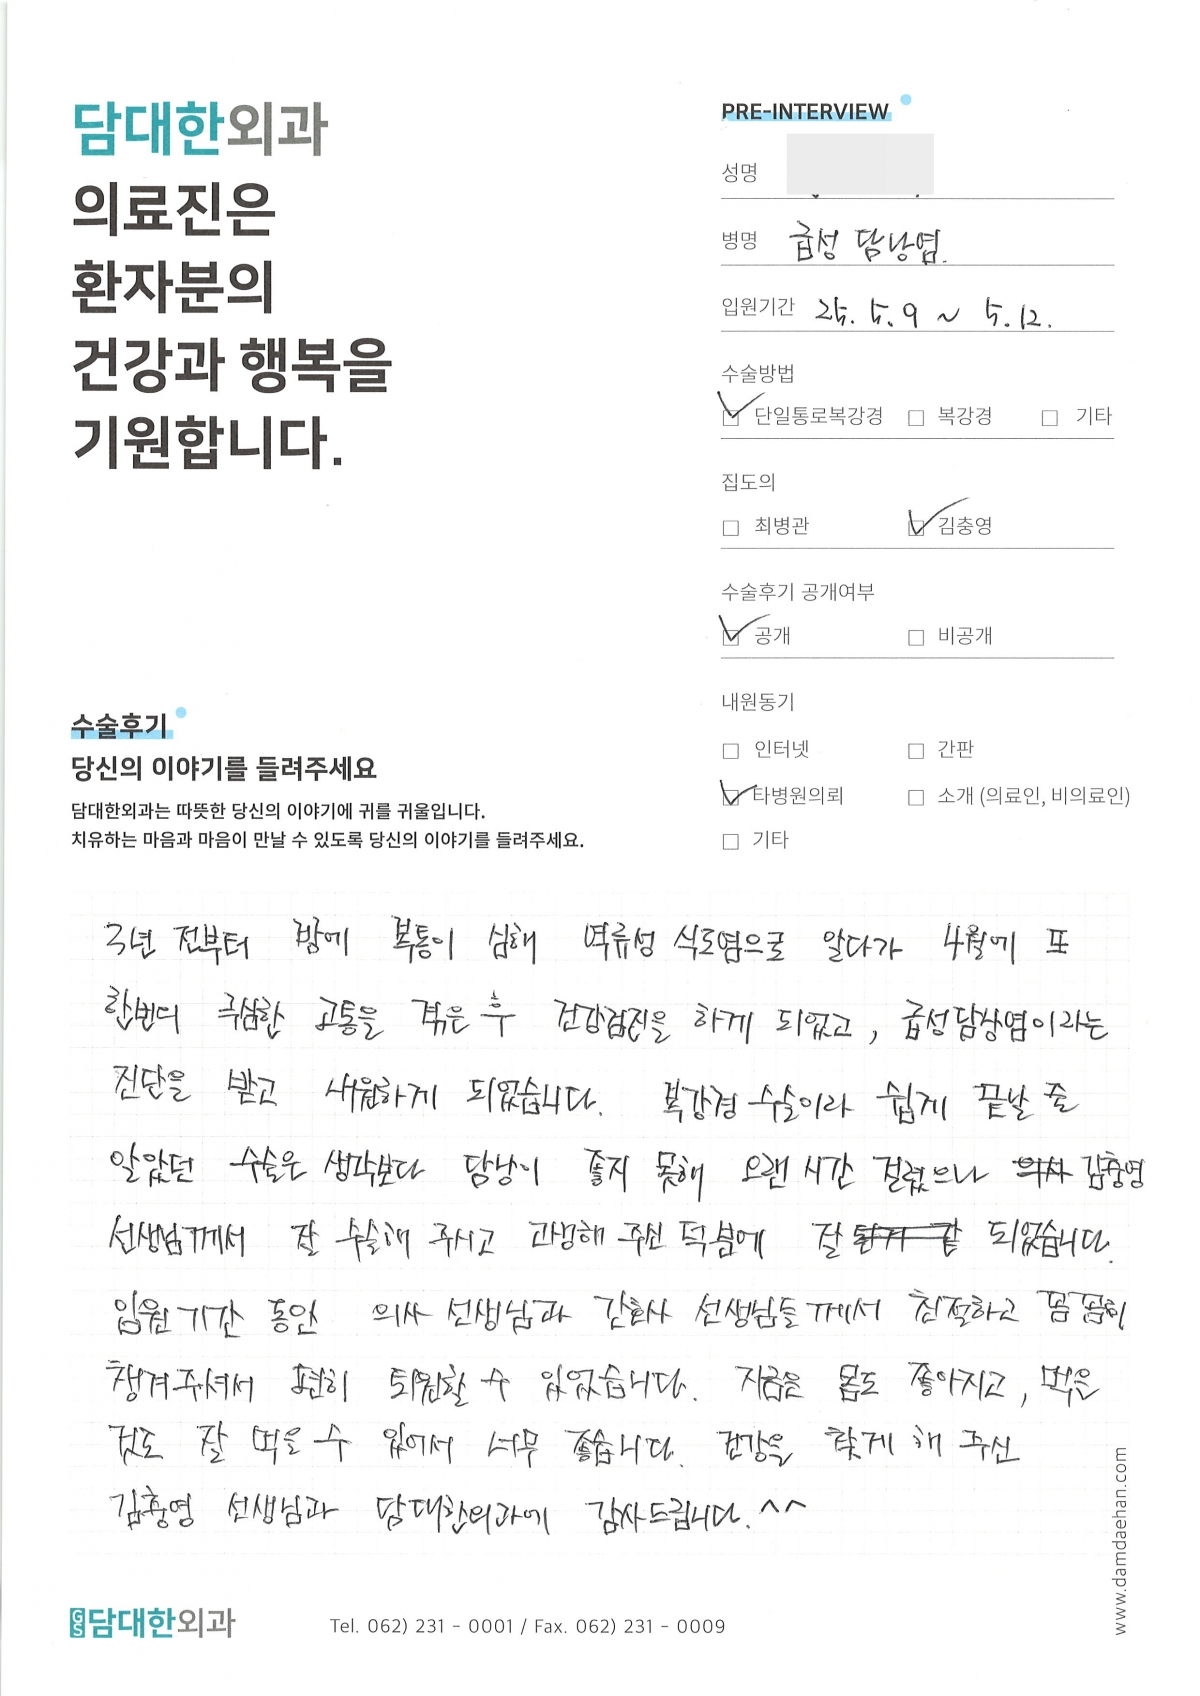 담대한외과
의료진은
환자분의
건강과 행복을
기원합니다.
PRE-INTERVIEW
성명
병명 급성 담낭염.
입원기간 25. 5. 9 ~ 5. 12.
수술방법
단일통로복강경 복강경 기타
집도의
최병관 김충영
수술후기 공개여부
공개 비공개
내원동기
인터넷 간판
타병원의뢰 소개 (의료인, 비의료인)
기타
수술후기
당신의 이야기를 들려주세요
담대한외과는 따뜻한 당신의 이야기에 귀를 귀울입니다.
치유하는 마음과 마음이 만날 수 있도록 당신의 이야기를 들려주세요.
3년 전부터 밤에 복통이 심해 역류성 식도염으로 알다가 4월에 또
한번더 극심한 고통을 겪은 후 건강검진을 하게 되었고, 급성담낭염이라는
진단을 받고 내원하게 되었습니다. 복강경 수술이라 쉽게 끝날 줄
알았던 수술은 생각보다 담낭이 좋지 못해 오랜 시간 걸렸으나 의사 김충영
선생님께서 잘 수술해 주시고 고생해 주신 덕분에 잘 되었습니다.
입원기간 동안 의사 선생님과 간호사 선생님들께서 친절하고 꼼꼼히
챙겨주셔서 편히 퇴원할 수 있었습니다. 지금은 몸도 좋아지고, 먹은
것도 잘 먹을 수 있어서 너무 좋습니다. 건강을 찾게 해 주신
김충영 선생님과 담대한외과에 감사드립니다. ^^
GS 담대한외과
Tel. 062) 231 - 0001 / Fax. 062) 231 - 0009
www.damdaehan.com